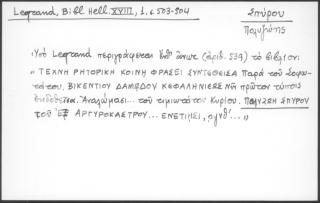 Legrand, Bibl. Hell. XVIII, 1, σ 503-504
Σπύρου
Πολυζώης
Ὑπὸ Legrand περιγράφεται ἐνθ' ἄνωτ. (ἀριθ. 539) τὸ βιβλίον:
"ΤΕΧΝΗ ΡΗΤΟΡΙΚΗ ΚΟΙΝΗ ΦΡΑΣΕΙ ΣΥΝΤΕΘΕΙΣΑ Παρὰ τοῦ Σοφω-
τάτου ΒΙΚΕΝΤΙΟΥ ΔΑΜΟΔΟΥ ΚΕΦΑΛΗΝΙΕΩΣ Νῦν πρῶτον τύποις
ἐκδοθεῖσα. Ἀναλώμασι... τοῦ τιμιωτάτου Κυρίου. ΠΟΛΥΖΩΗ ΣΠΥΡΟΥ
τοῦ ἐξ ΑΡΓΥΡΟΚΑΣΤΡΟΥ... ΕΝΕΤΙΗΣΙ, αψνθ'..."